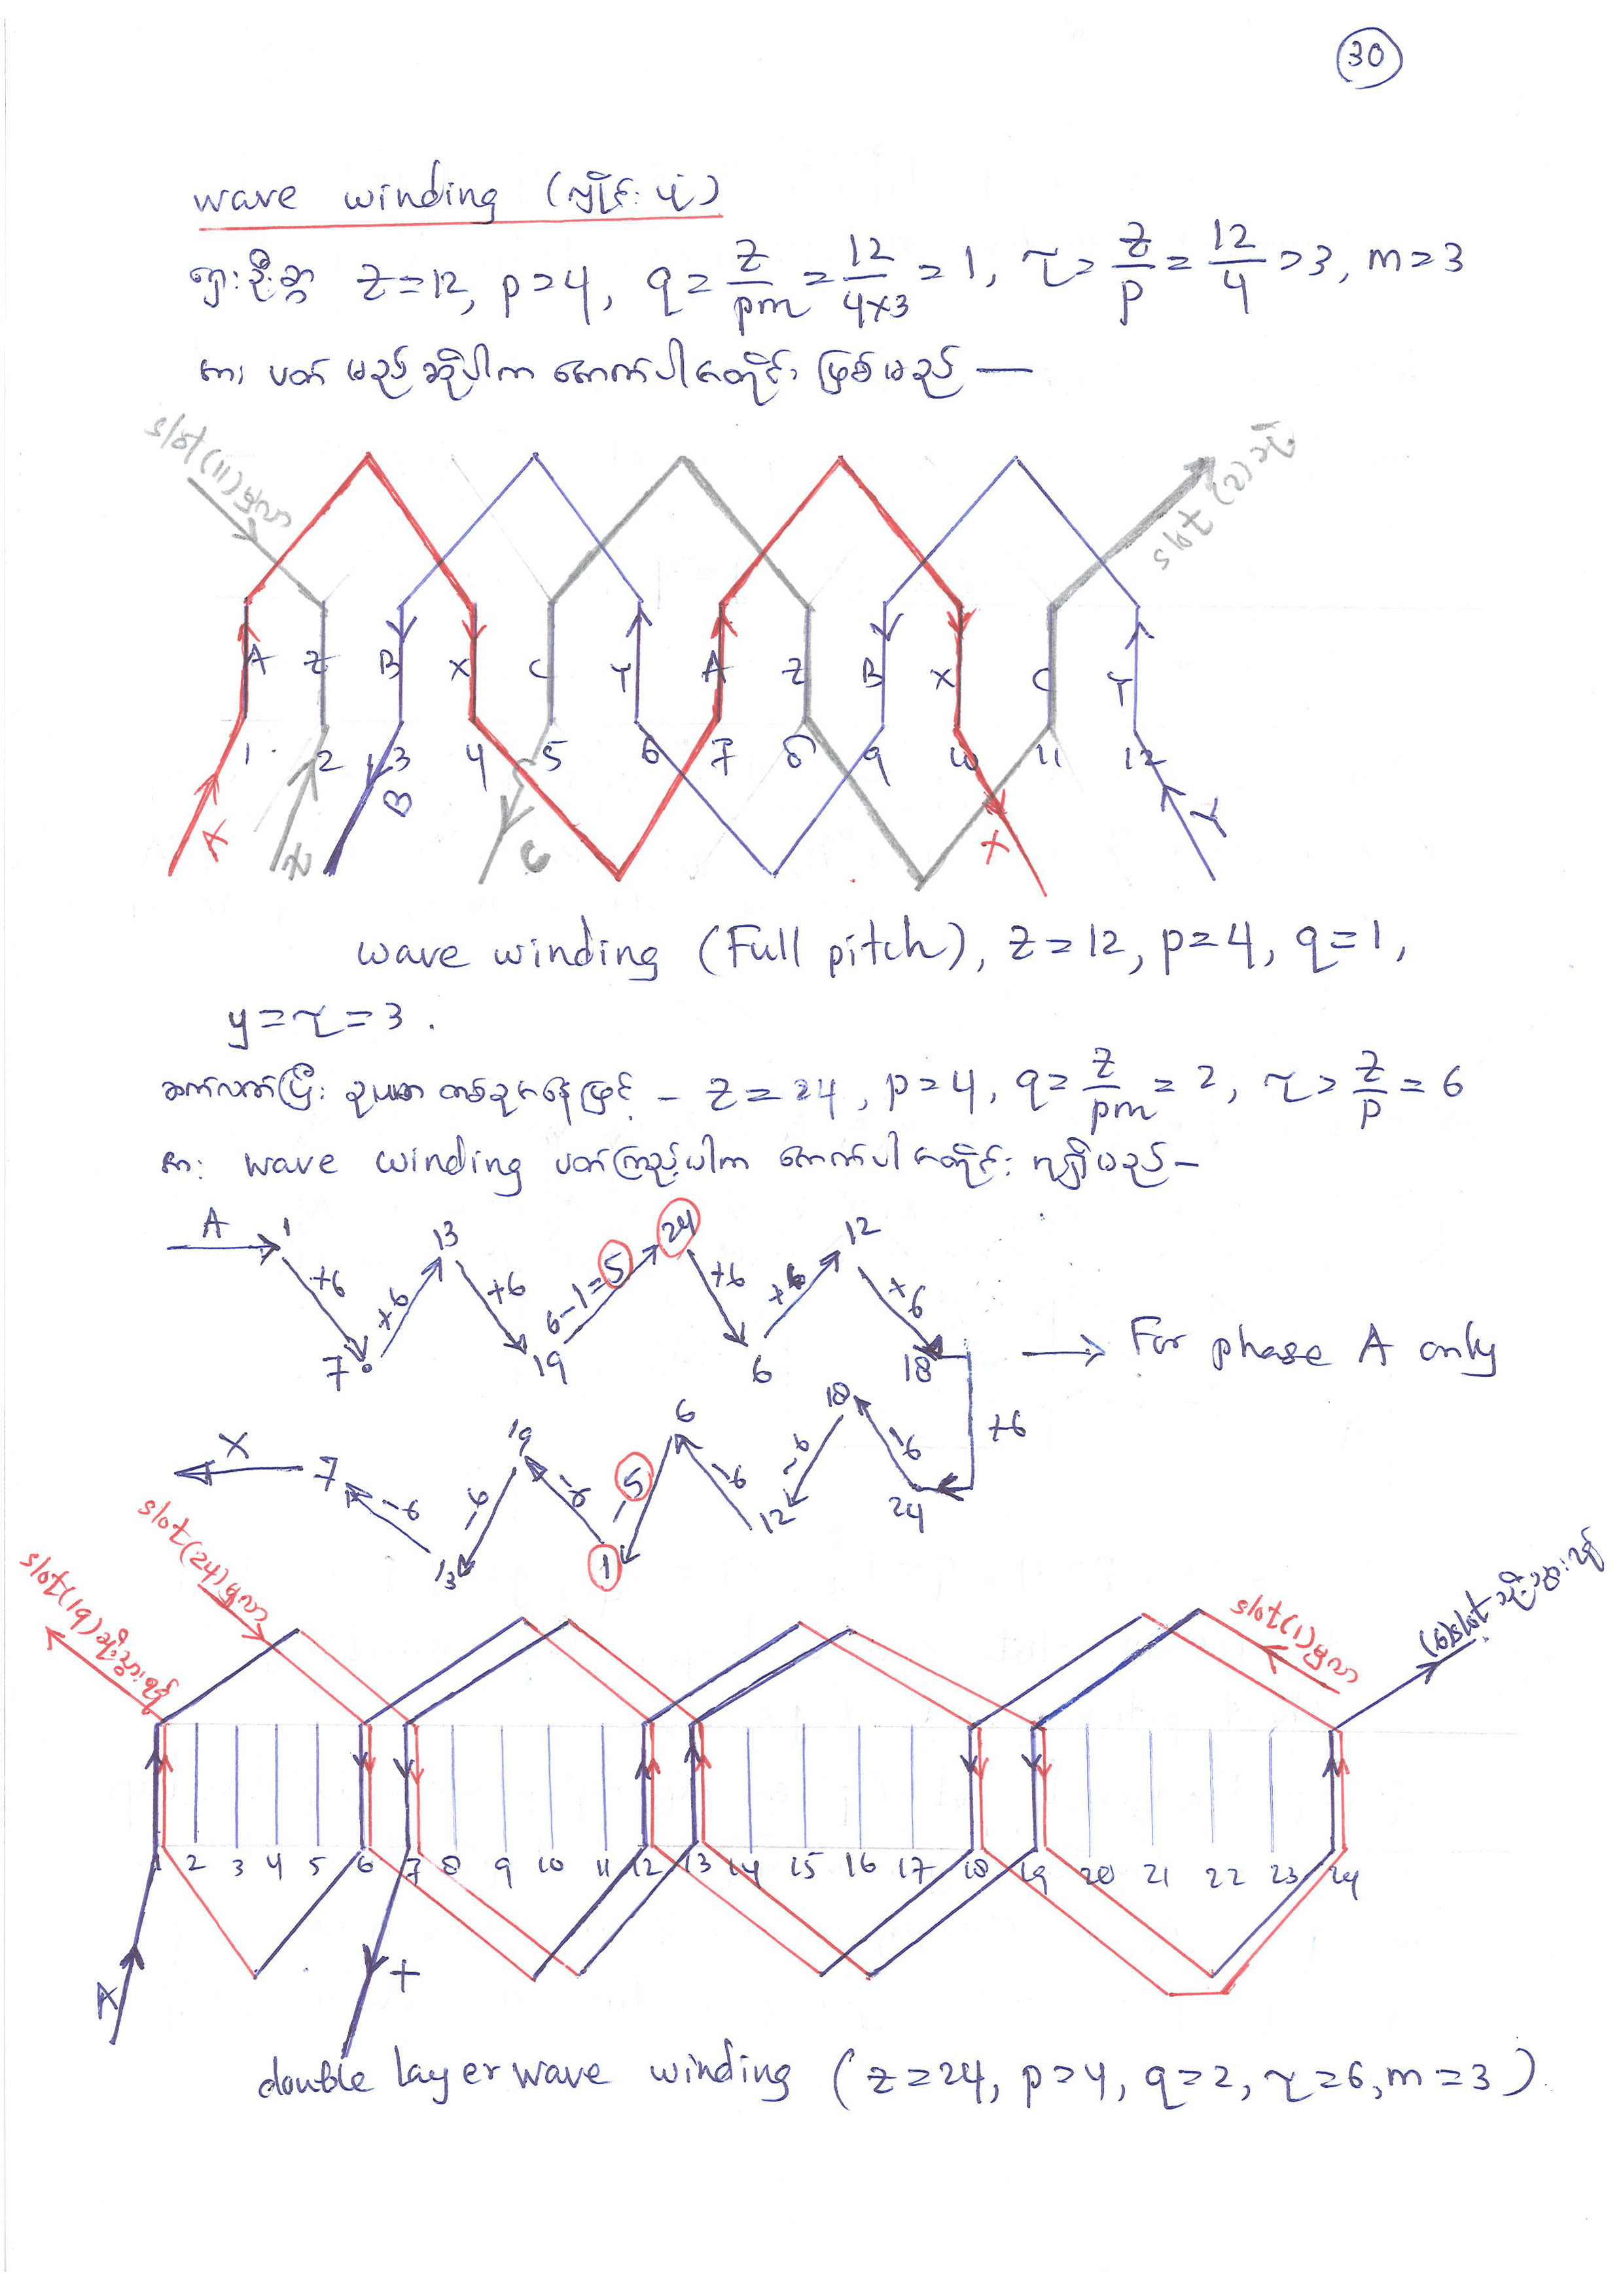 30
wave winding (လှိုင်းပုံ)
ရှေးဦးစွာ z=12, p=4, q=z/pm=12/4×3=1, τ=z/p=12/4=3, m=3
အား ပတ်မည်ဆိုပါက အောက်ပါအတိုင်း ဖြစ်မည် —
slot (11) မှလာ
slot (2) သို့
A Z B X C Y A Z B X C Y
1 2 3 4 5 6 7 8 9 10 11 12
A Z B C X Y
wave winding (Full pitch), z=12, p=4, q=1,
y=τ=3.
ဆက်လက်ပြီး ဥပမာ တစ်ခုအနေဖြင့် - z=24, p=4, q=z/pm=2, τ=z/p=6
အား wave winding ပတ်ကြည့်ပါက အောက်ပါအတိုင်း ရရှိမည် -
A 1 +6 7 +6 13 +6 19 6-1=5 24 +6 6 +6 12 +6 18 → For phase A only
+6
X 7 -6 13 -6 19 -6 1 -5 6 -6 12 -6 18 -6 24
slot (24) မှလာ
slot (19)
slot (1) မှလာ
(6) slot
1 2 3 4 5 6 7 8 9 10 11 12 13 14 15 16 17 18 19 20 21 22 23 24
A
double layer wave winding (z=24, p=4, q=2, τ=6, m=3)